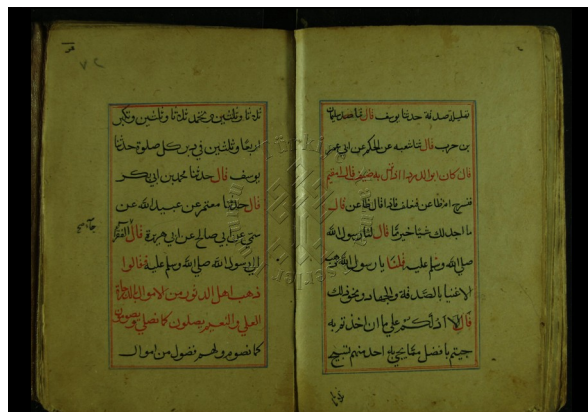 صدقة حدثنا يوسف قال ثنا سليمان
بن حرب قال ثنا شعبه عن الحكم عن ابي عمر
قال كان ابو الدرداء اذا نزل به ضيف قال امقيم
فنسرح ام ظاعن فنعلف فاذا قال ظاعن قال
ما اجد لك شيئا خيرا مما قال لنا رسول الله
صلى الله وسلم عليه قلنا يا رسول الله ذهب
الاغنيا بالصدقة والجهاد ونحو ذلك
قال الا ادلكم على ما ان اخذتم به
جيتم بافضل مما يجي به احد منهم تسبح
ثلاثا وثلثين وتحمد ثلاثا وثلثين وتكبر
اربعا وثلثين في دبر كل صلوة حدثنا
يوسف قال حدثنا محمد بن ابي بكر
قال حدثنا معتمر عن عبيد الله عن
سمي عن ابي صالح عن ابي هريرة قال الفقرا
الى رسول الله صلى الله وسلم عليه فقالوا
ذهب اهل الدثور من الاموال بالدرجات
العلى والنعيم يصلون كما نصلي ويصومون
كما نصوم ولهم فضول من اموال